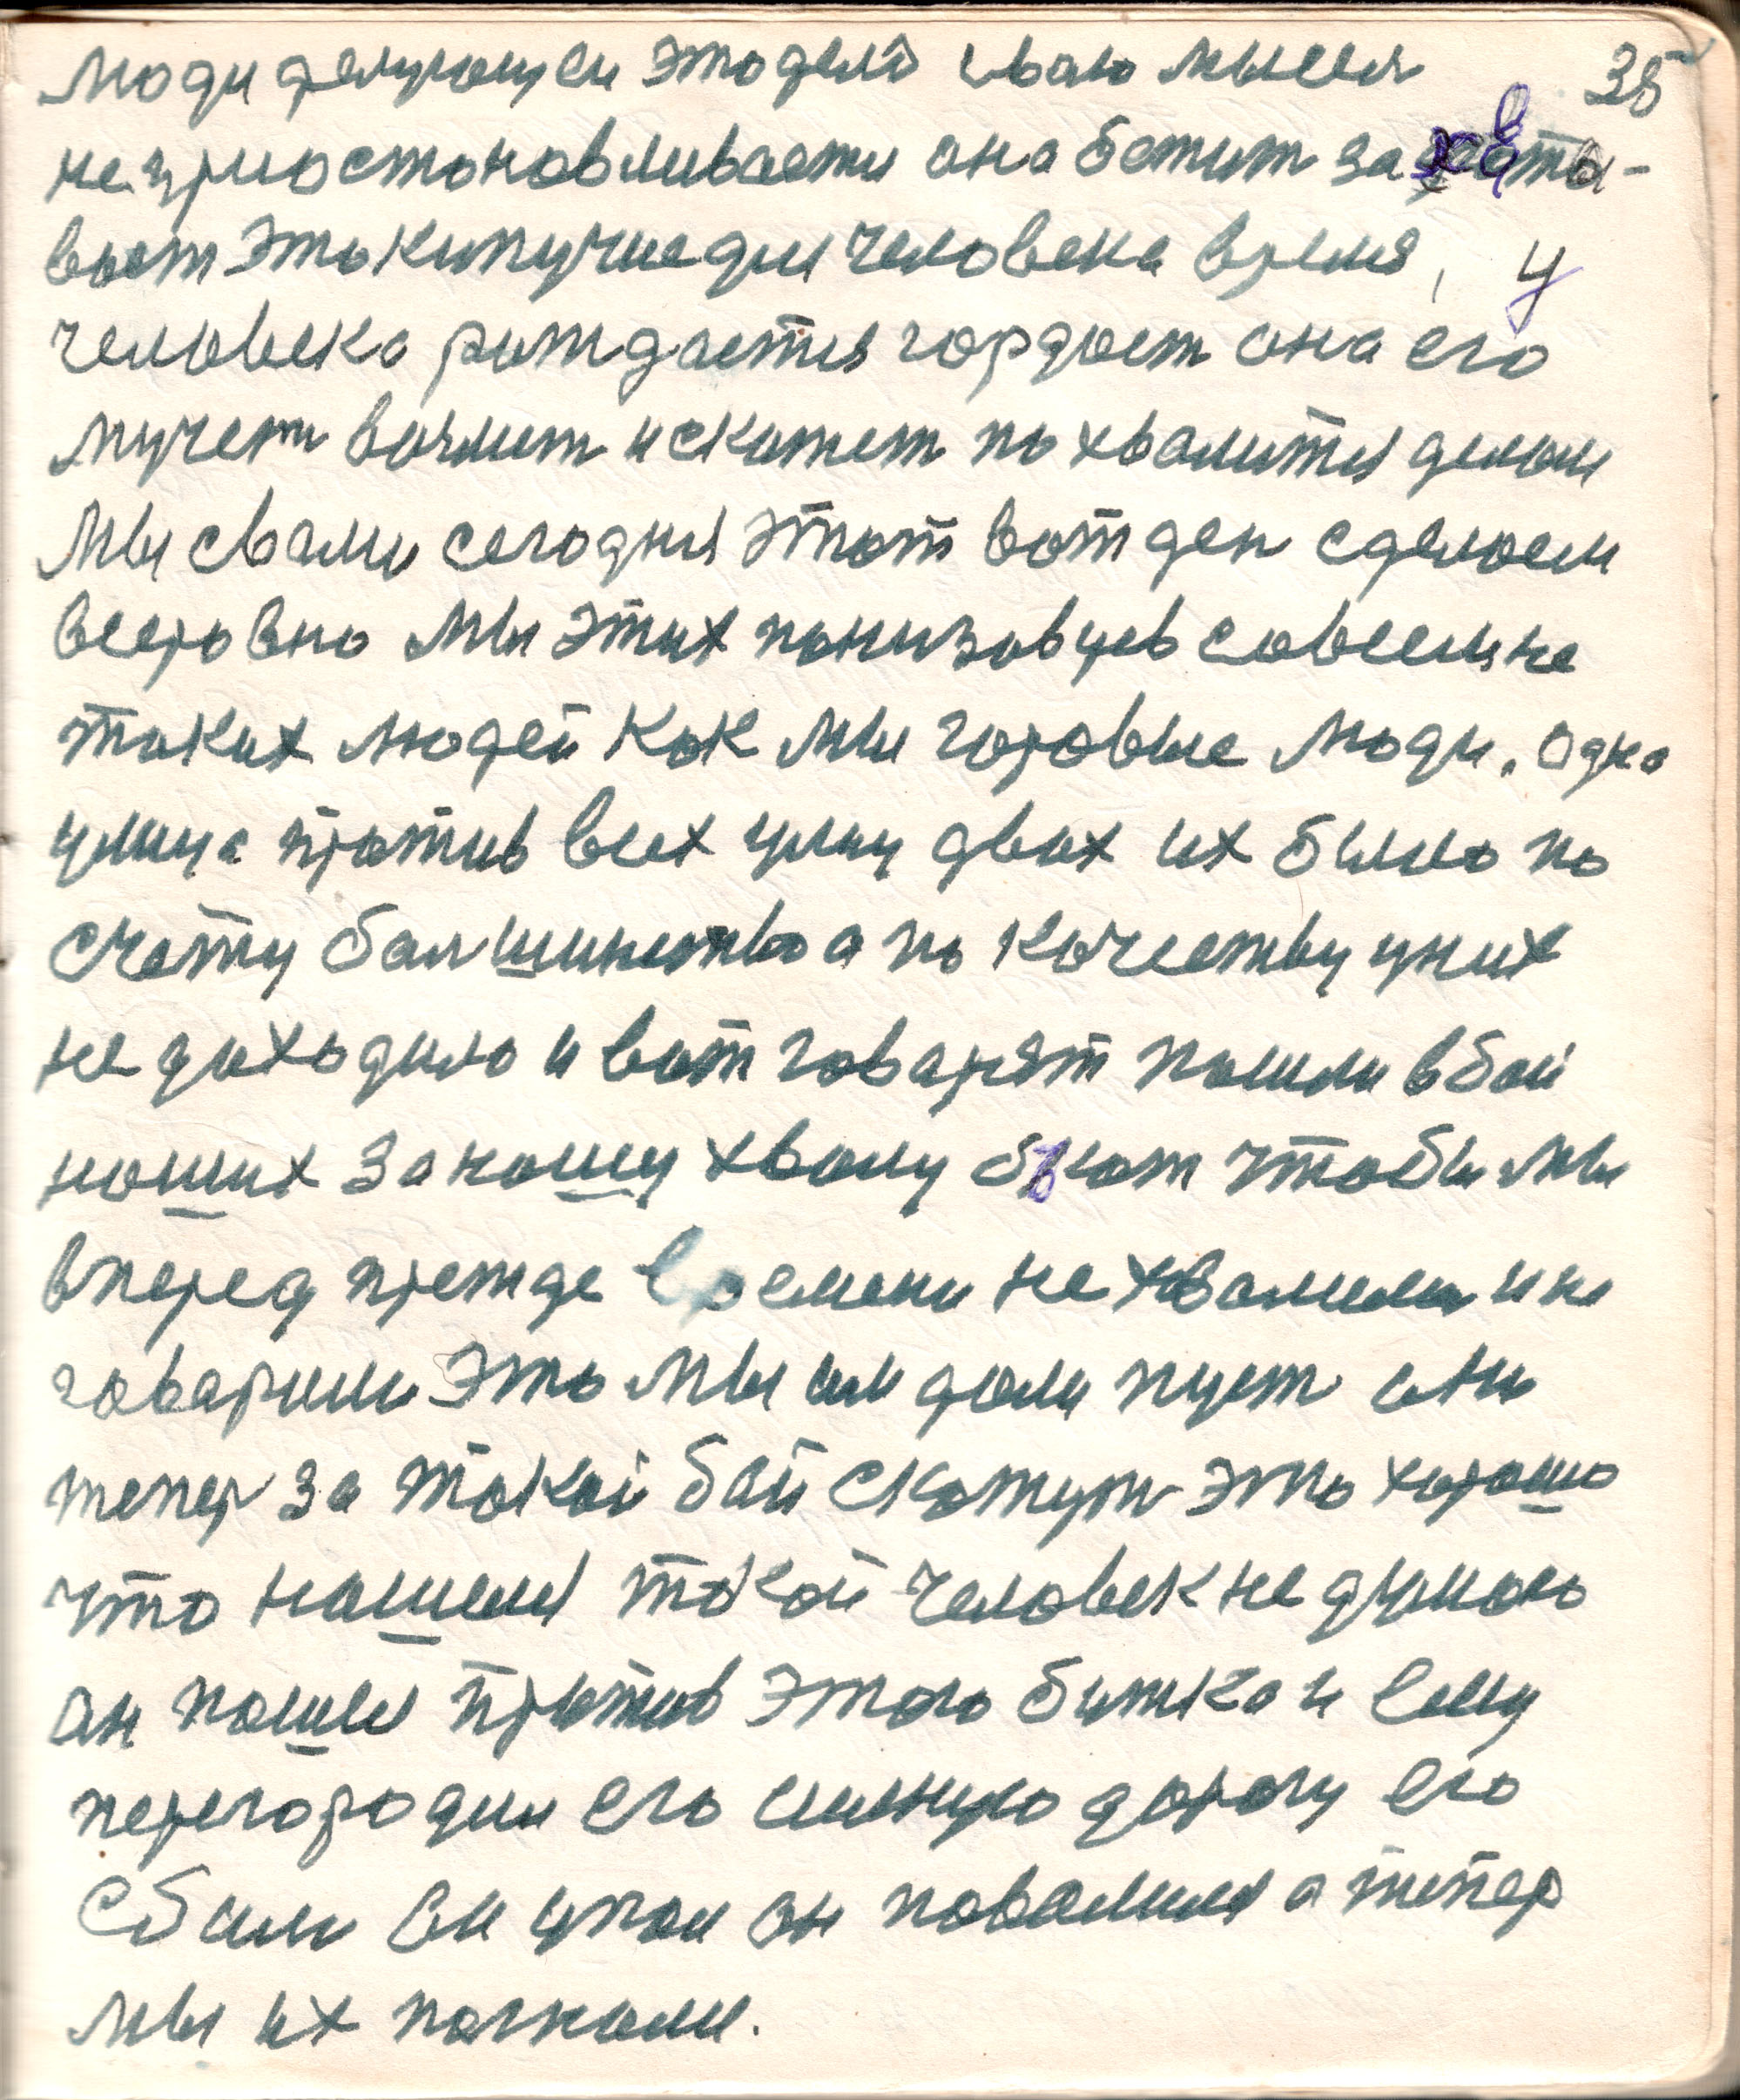 35
люди делующеи это дела сваю мысля
не приостоновливаети она бежит захваты-
вает это кипучие для человека время, у
человека рождается гордост она его
мучет возмет и скажет похвалится делом
Мы свами сегодня этот вот ден сделаем
всеровно мы этих понизовцев совсем не
таких людей как мы горовые люди. Одна
улица против всех улиц двих их было по
счету балшинство а по качеству у них
не доходило и вот говарят пошли в бой
наших за нашу хвалу бют чтобы мы
вперед прежде времени не хвалили и не
говарили это мы им дали пуст они
тепер за такой бой скажут это хорошо
что нашелся такой человек не думою
он пошел против этого битка и ему
перегородил его силную дорогу его
сбили он упал он повалился а типер
мы их погнали.